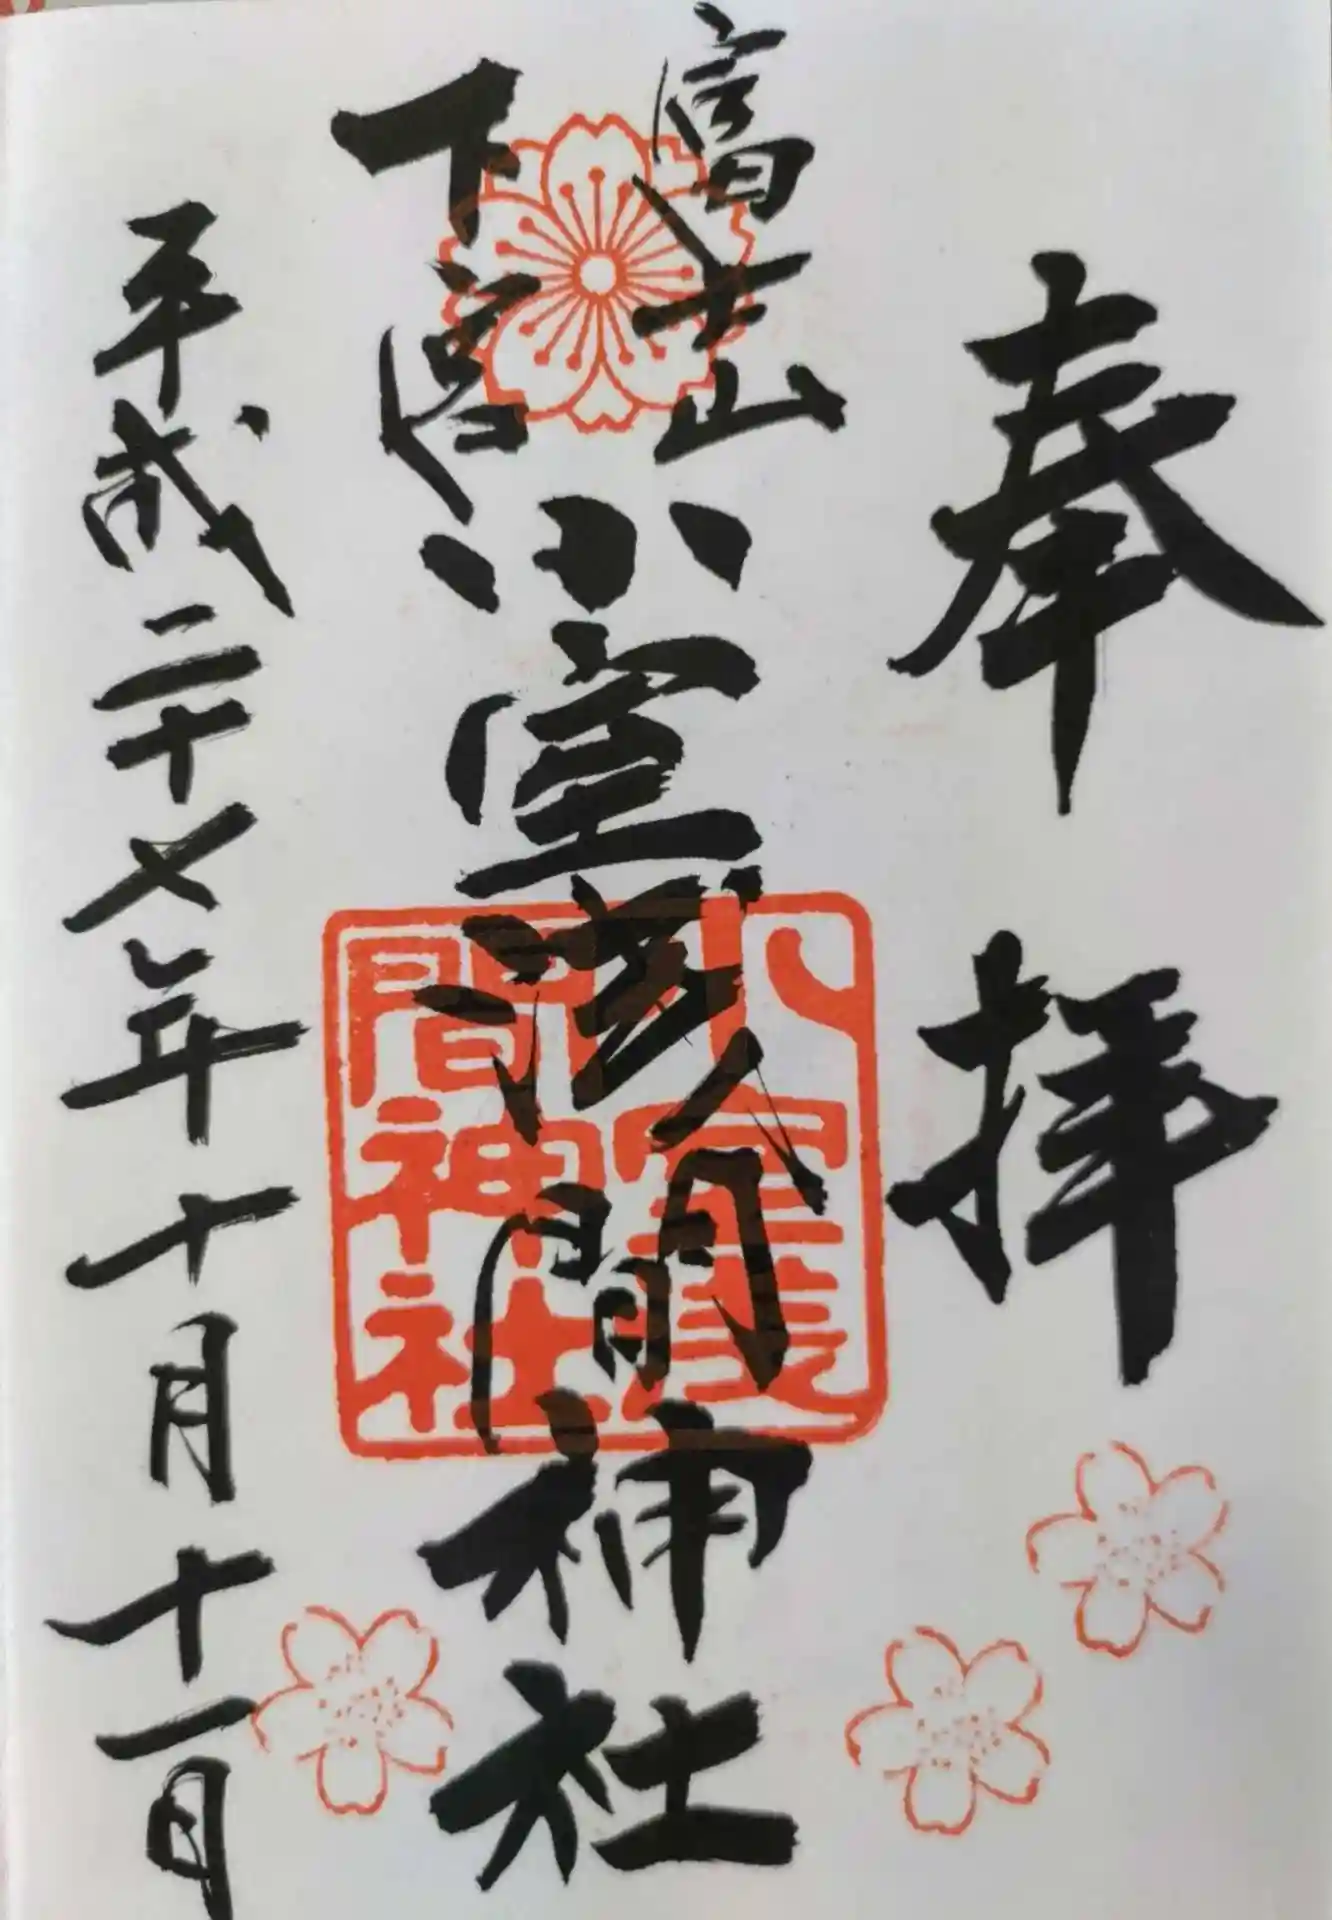 奉拝
富士山
下宮
小室浅間神社
小室
間神社
平成二十七年十月十一日